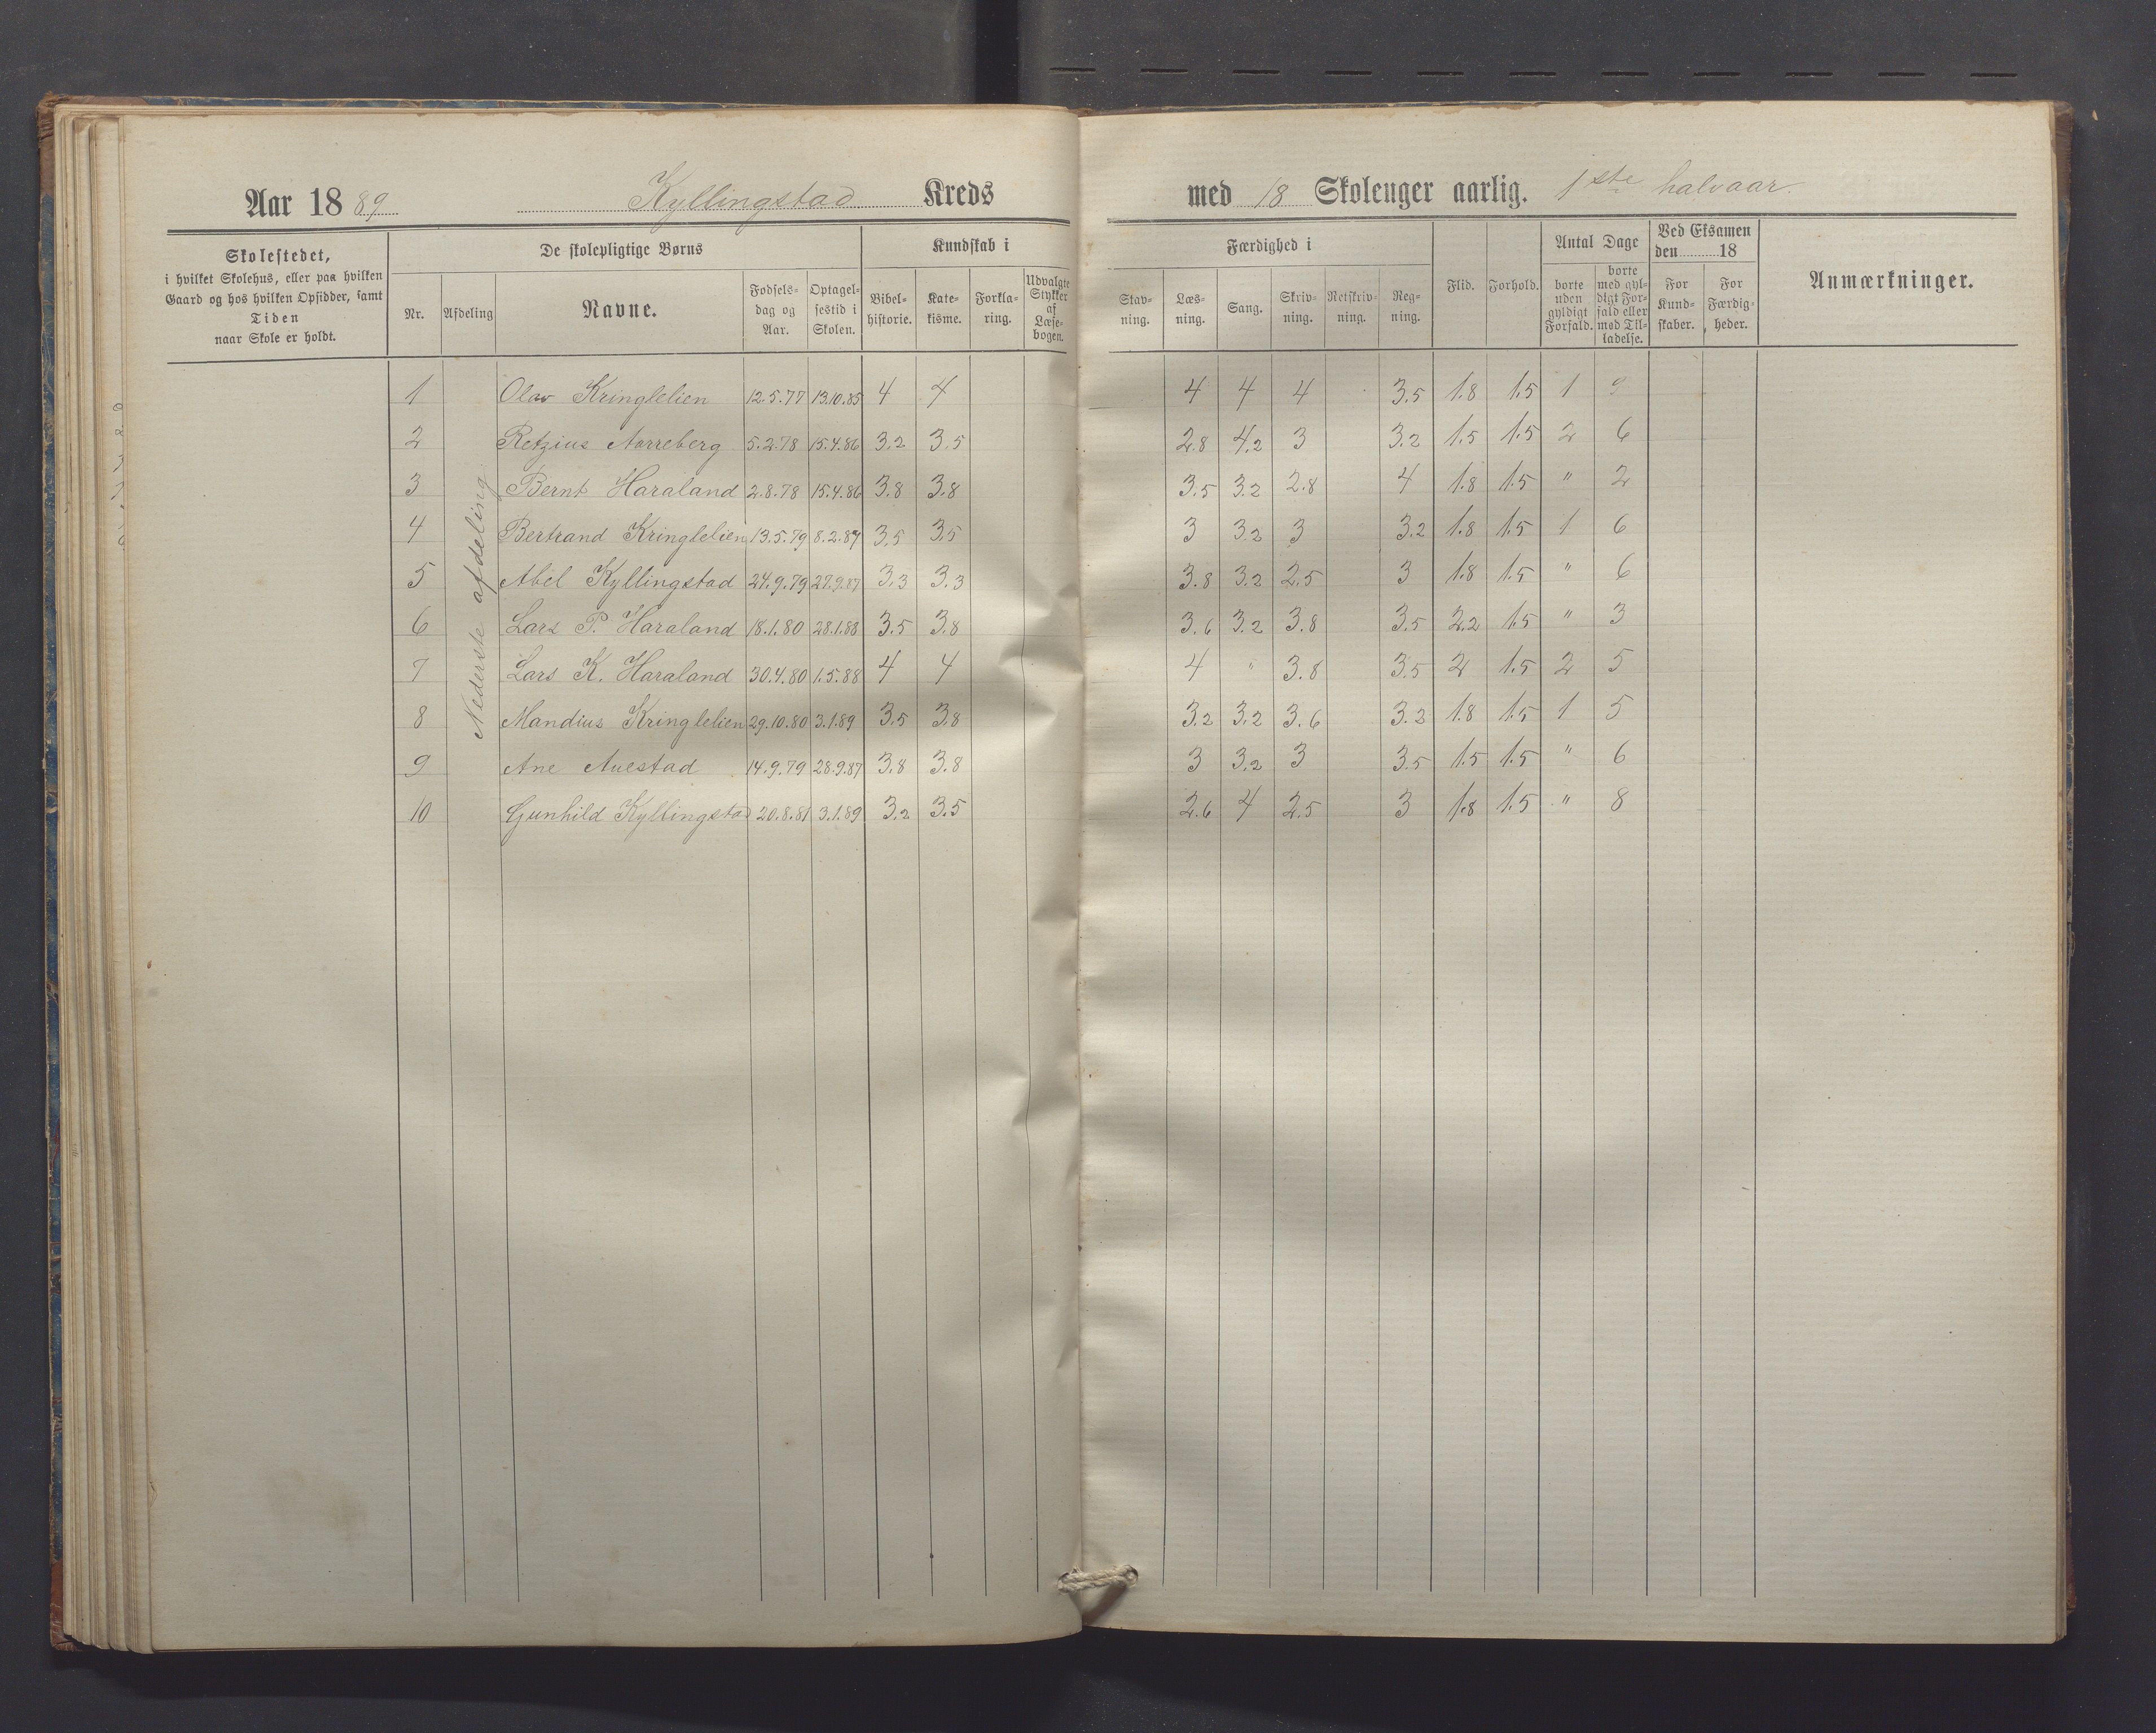 Aar 1889 Kyllingstad Kreds med 18 Skoleuger aarlig. 1ste halvaar.
Skolestedet,
i hvilket Skolehus, eller paa hvilken
Gaard og hos hvilken Opsidder, samt
Tiden
naar Skole er holdt.
De skolepligtige Børns
Nr. Afdeling Navne.
Fødsels-
dag og
Aar.
Optagel-
sestid i
Skolen.
Kundskab i
Bibel-
historie.
Kate-
kisme.
Forkla-
ring.
Udvalgte
Stykker
af
Læse-
bogen.
Færdighed i
Stav-
ning.
Læs-
ning.
Sang.
Skriv-
ning.
Retskriv-
ning.
Reg-
ning.
Flid. Forhold.
Antal Dage
borte
uden
gyldigt
Forfald.
borte
med gyl-
digt For-
fald eller
med Til-
ladelse.
Ved Eksamen
den 18
For
Kund-
skaber.
For
Færdig-
heder.
Anmærkninger.
Nederste afdeling
1 Olav Kringlelien 12.5.77 13.10.85 4 4 4 4 4 3.5 1.8 1.5 1 9
2 Retzius Norreberg 5.2.78 15.4.86 3.2 3.5 2.8 4.2 3 3.2 1.5 1.5 2 6
3 Bernt Haraland 2.8.78 15.4.86 3.8 3.8 3.5 3.2 2.8 4 1.8 1.5 " 2
4 Bertrand Kringlelien 13.5.79 8.2.87 3.5 3.5 3 3.2 3 3.2 1.8 1.5 1 6
5 Abel Kyllingstad 24.9.79 27.9.87 3.3 3.3 3.8 3.2 2.5 3 1.8 1.5 " 6
6 Lars P. Haraland 18.1.80 28.1.88 3.5 3.8 3.6 3.2 3.8 3.5 2.2 1.5 " 3
7 Lars K. Haraland 30.4.80 1.5.88 4 4 4 " 3.8 3.5 2 1.5 2 5
8 Mandius Kringlelien 29.10.80 3.1.89 3.5 3.8 3.2 3.2 3.6 3.2 1.8 1.5 1 5
9 Ane Auestad 14.9.79 28.9.87 3.8 3.8 3 3.2 3 3.5 1.5 1.5 " 6
10 Gunhild Kyllingstad 20.8.81 3.1.89 3.2 3.5 2.6 4 2.5 3 1.8 1.5 " 8